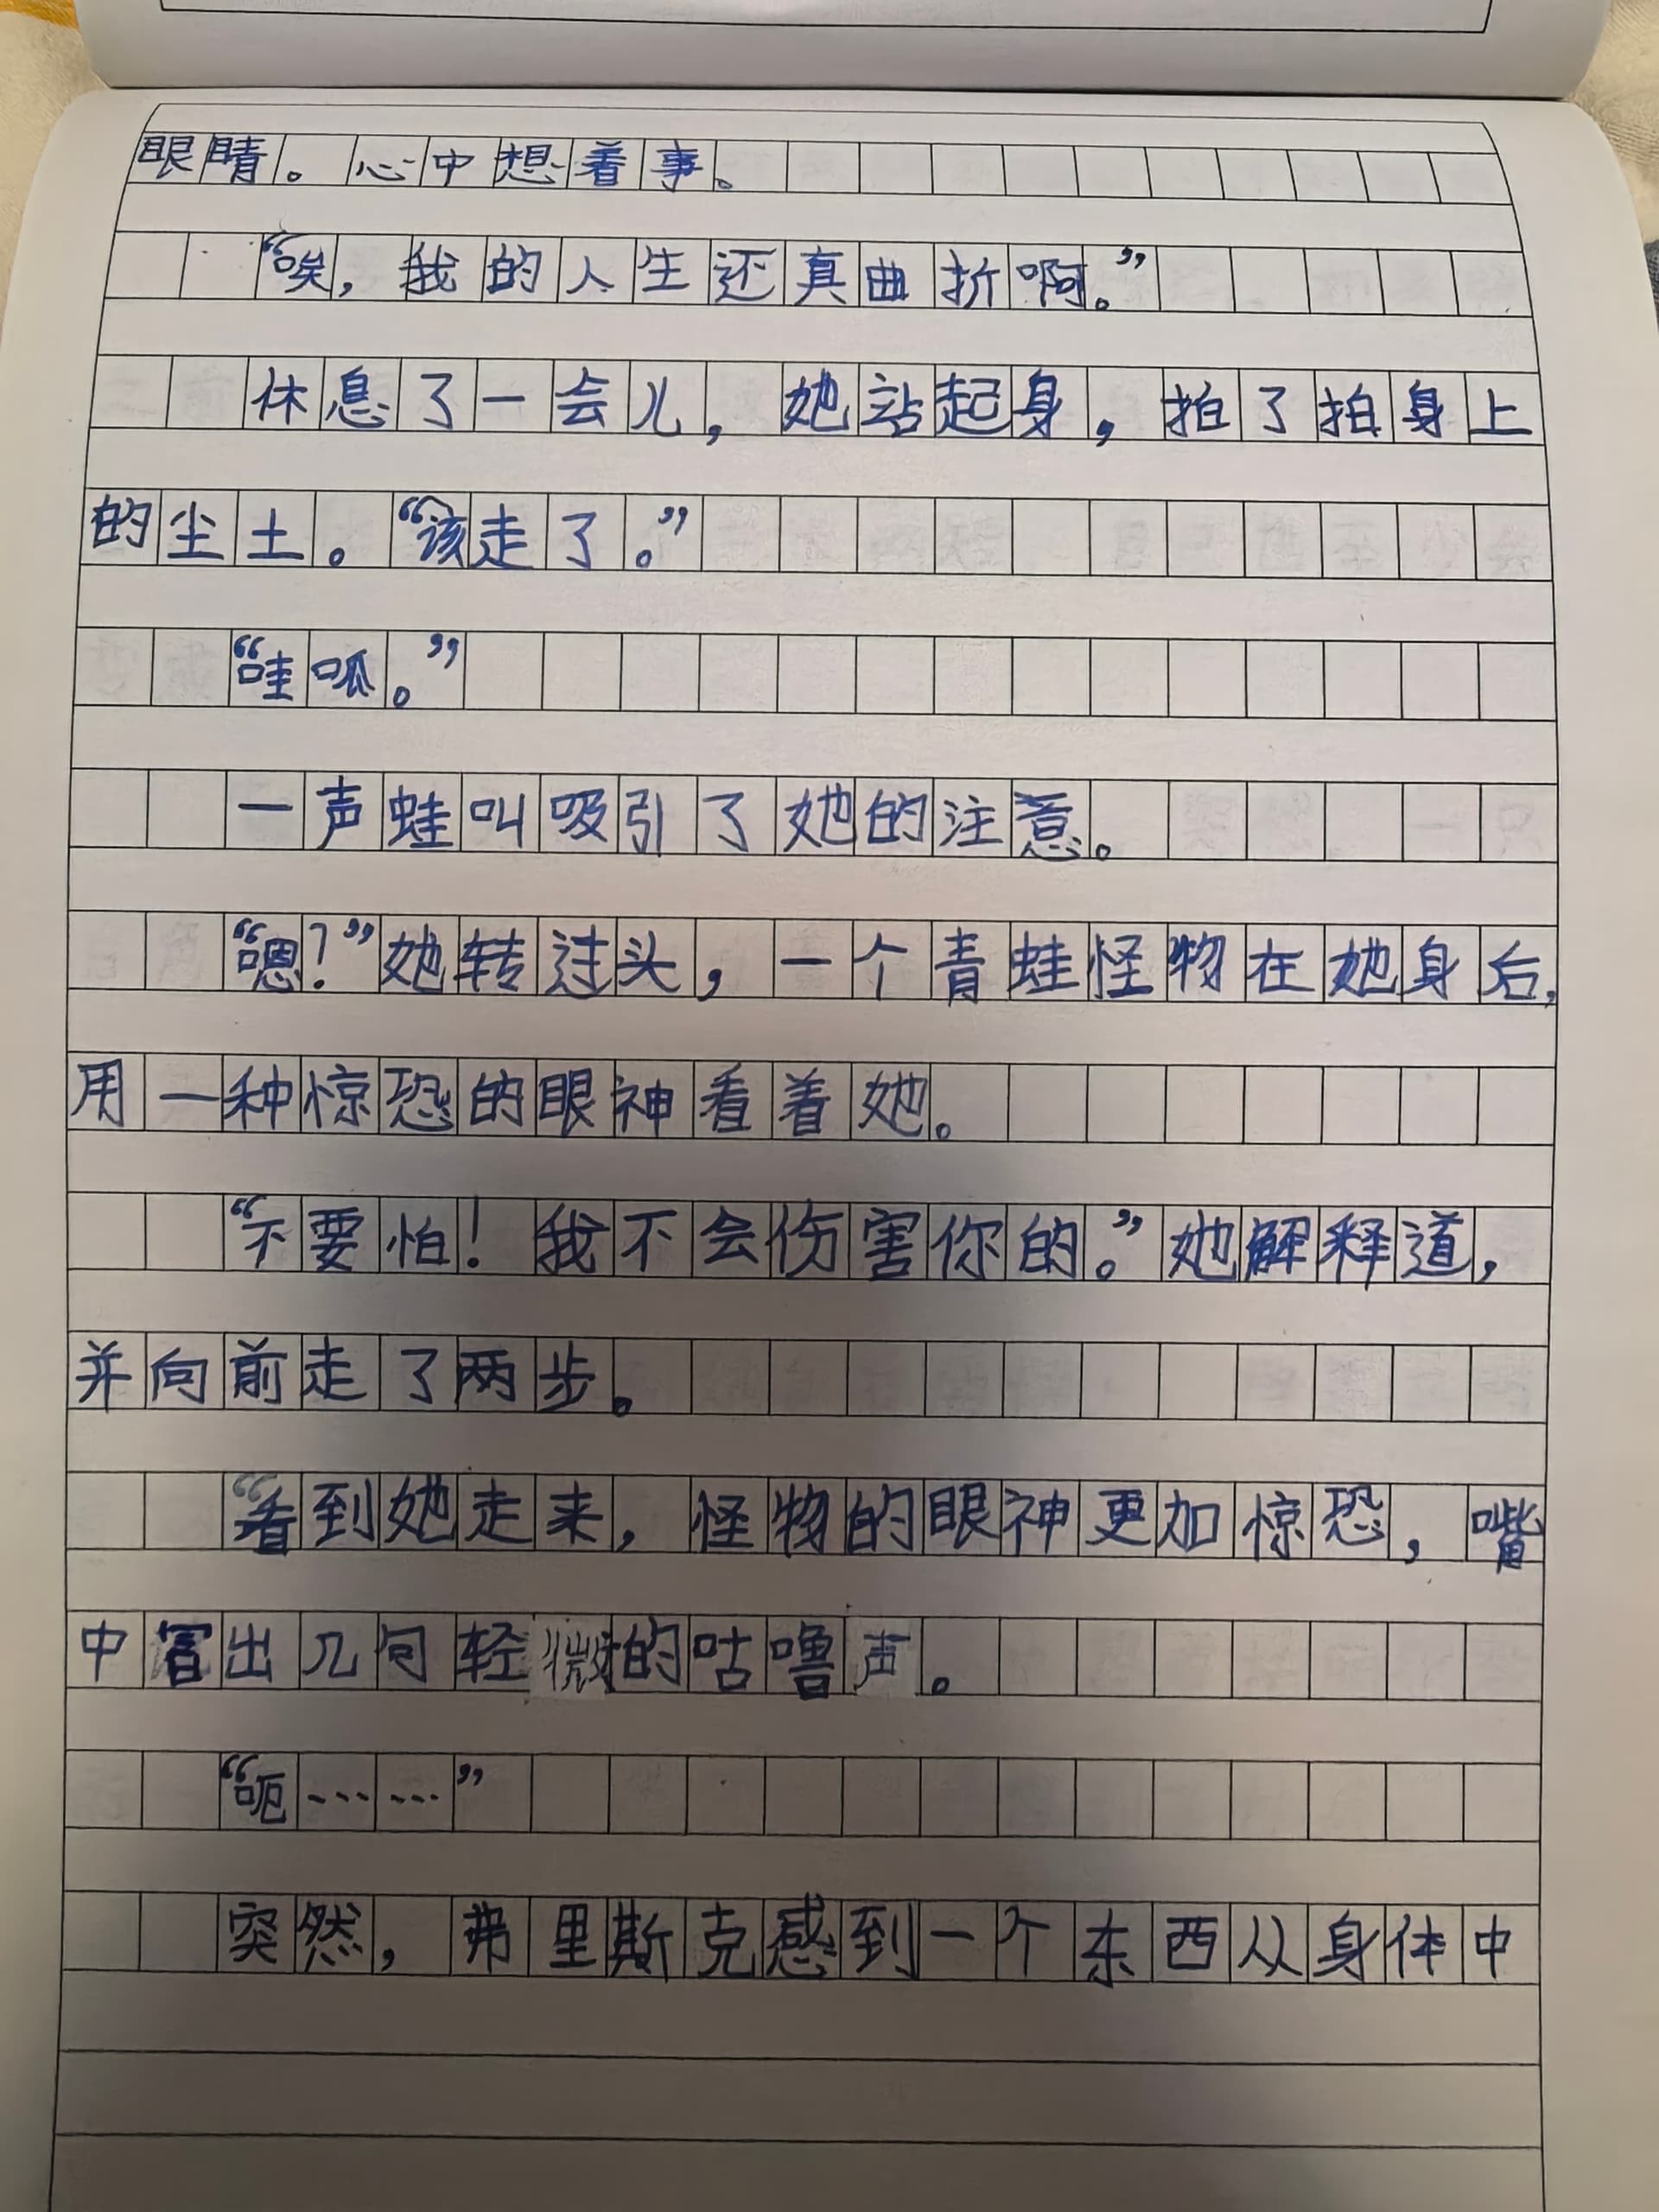 眼睛。心中想着事。
“唉，我的人生还真曲折啊。”
休息了一会儿，她站起身，拍了拍身上
的尘土。“该走了。”
“哇呱。”
一声蛙叫吸引了她的注意。
“嗯？”她转过头，一个青蛙怪物在她身后，
用一种惊恐的眼神看着她。
“不要怕！我不会伤害你的。”她解释道，
并向前走了两步。
“看到她走来，怪物的眼神更加惊恐，嘴
中冒出几句轻微的咕噜声。
“呃……”
突然，弗里斯克感到一个东西从身体中